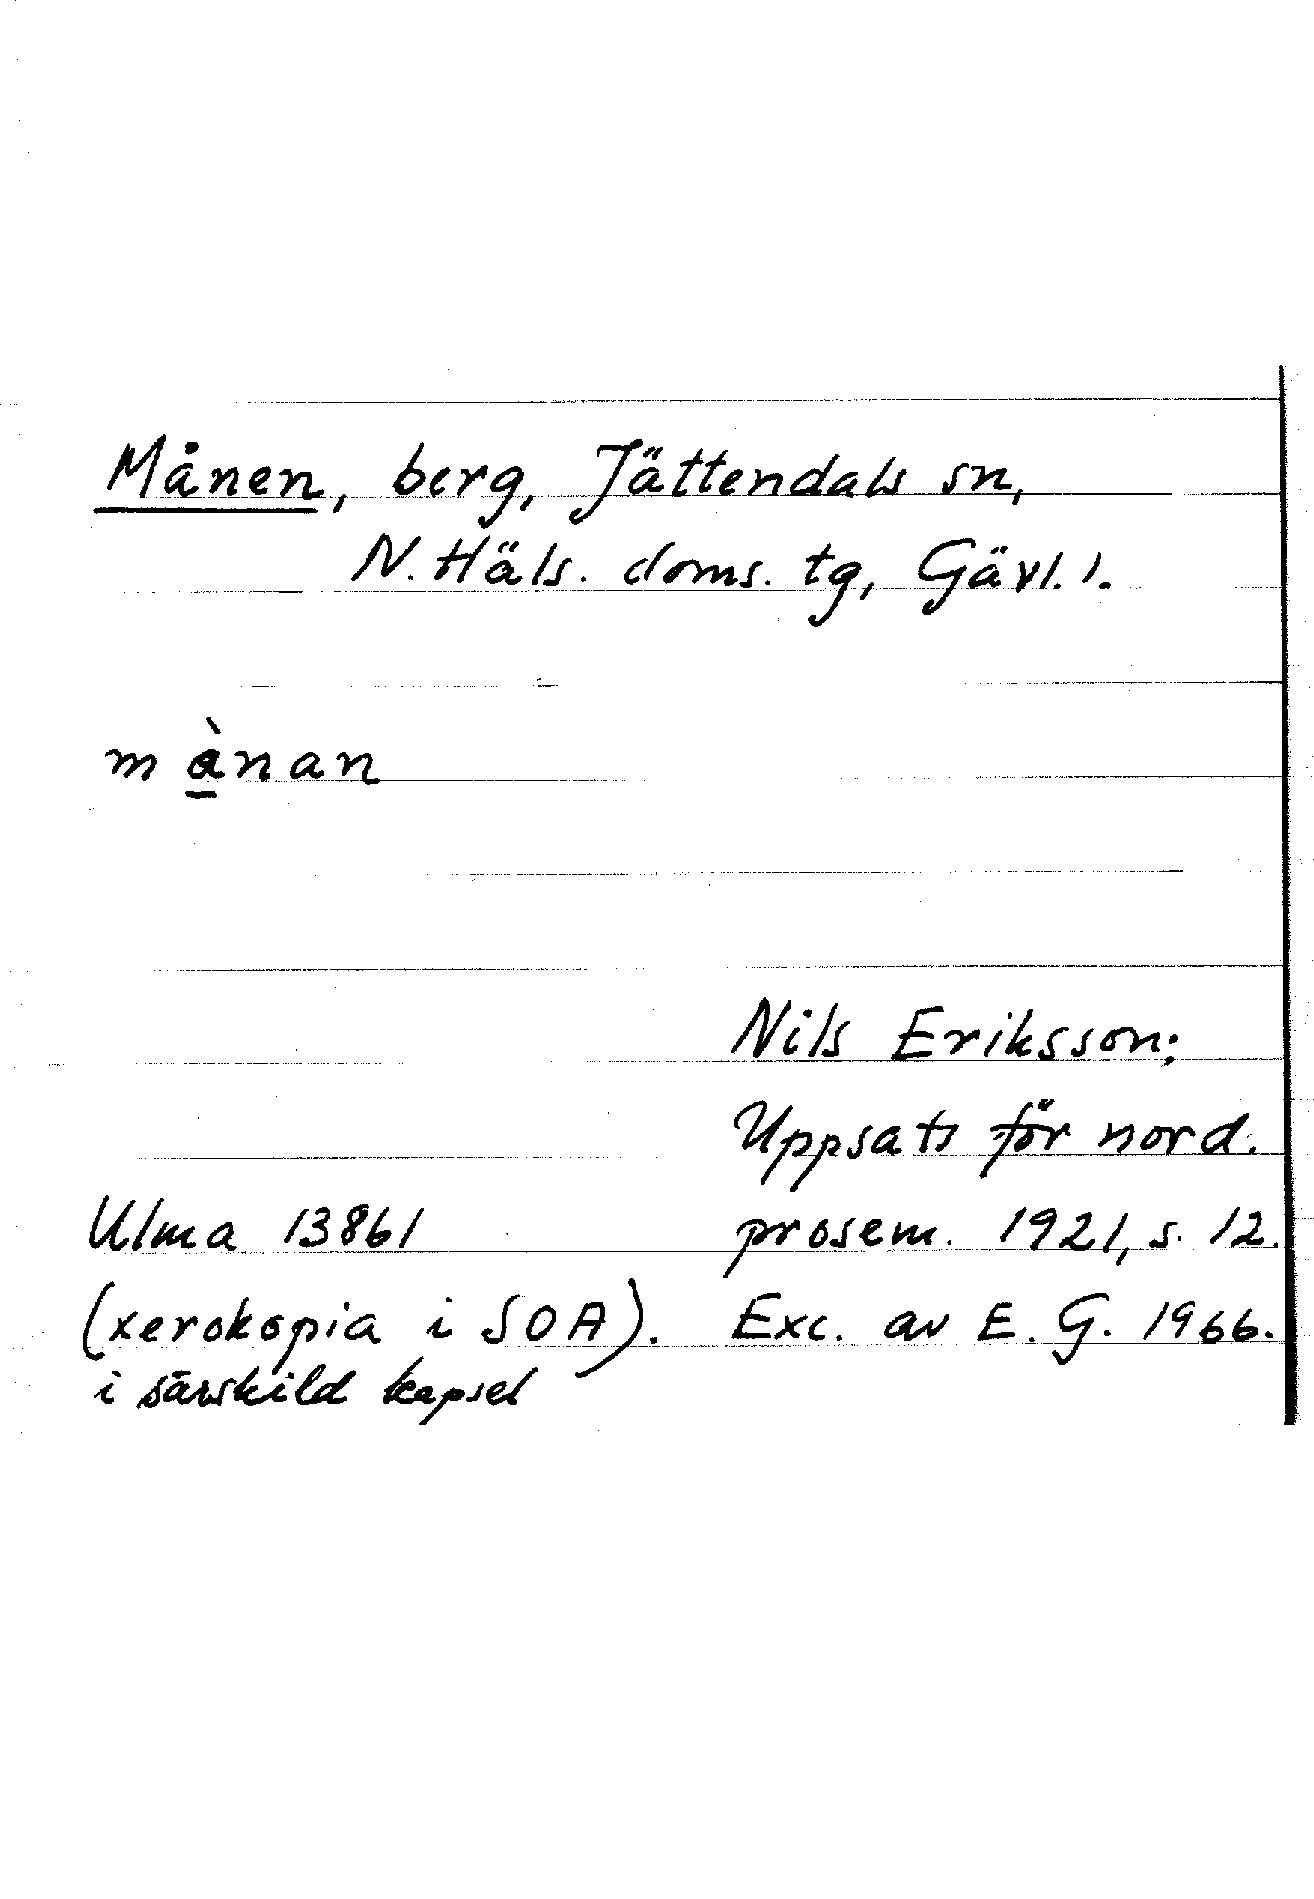 Månen, berg, Jättendals sn,
N. Häls. doms. tg, Gävl. l.
mànan
Nils Eriksson;
Uppsats för nord.
Ulma 13861 prosem. 1921, s. 12.
(xerokopia i SOA). Exc. av E. G. 1966.
i särskild kapsel